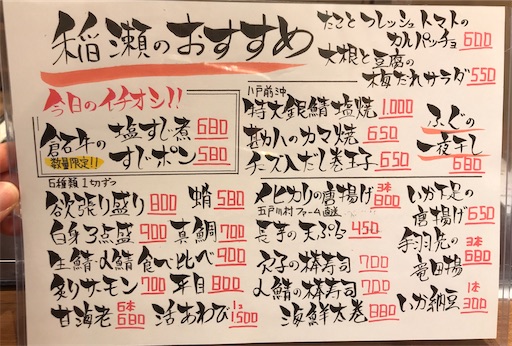 稲瀬のおすすめ
たことフレッシュトマトの
カルパッチョ 600
大根と豆腐の
梅だれサラダ 550
今日のイチオシ!!
倉石牛の
数量限定!!
塩すじ煮 680
すじポン 580
八戸前沖
特大銀鯖塩焼 1.000
勘八のカマ焼 650
チーズ入だし巻玉子 650
ふぐの
一夜干し
680
6種類1切ずつ
欲張り盛り 800
蛸 580
白身3点盛 900
真鯛 700
生鯖〆鯖食べ比べ 900
炙りサーモン 700
平目 800
甘海老 6本 680
活あわび 1コ 1500
メヒカリの唐揚げ 3本 600
五戸川村ファーム直送
長芋の天ぷら 450
穴子の棒寿司 700
〆鯖の棒寿司 700
海鮮太巻 880
いか下足の
唐揚げ 650
手羽先の
竜田揚 3本 680
いか納豆 1本 300